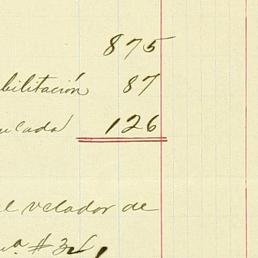 875
bilitación 87
ulada 126
el velador de
# 36,